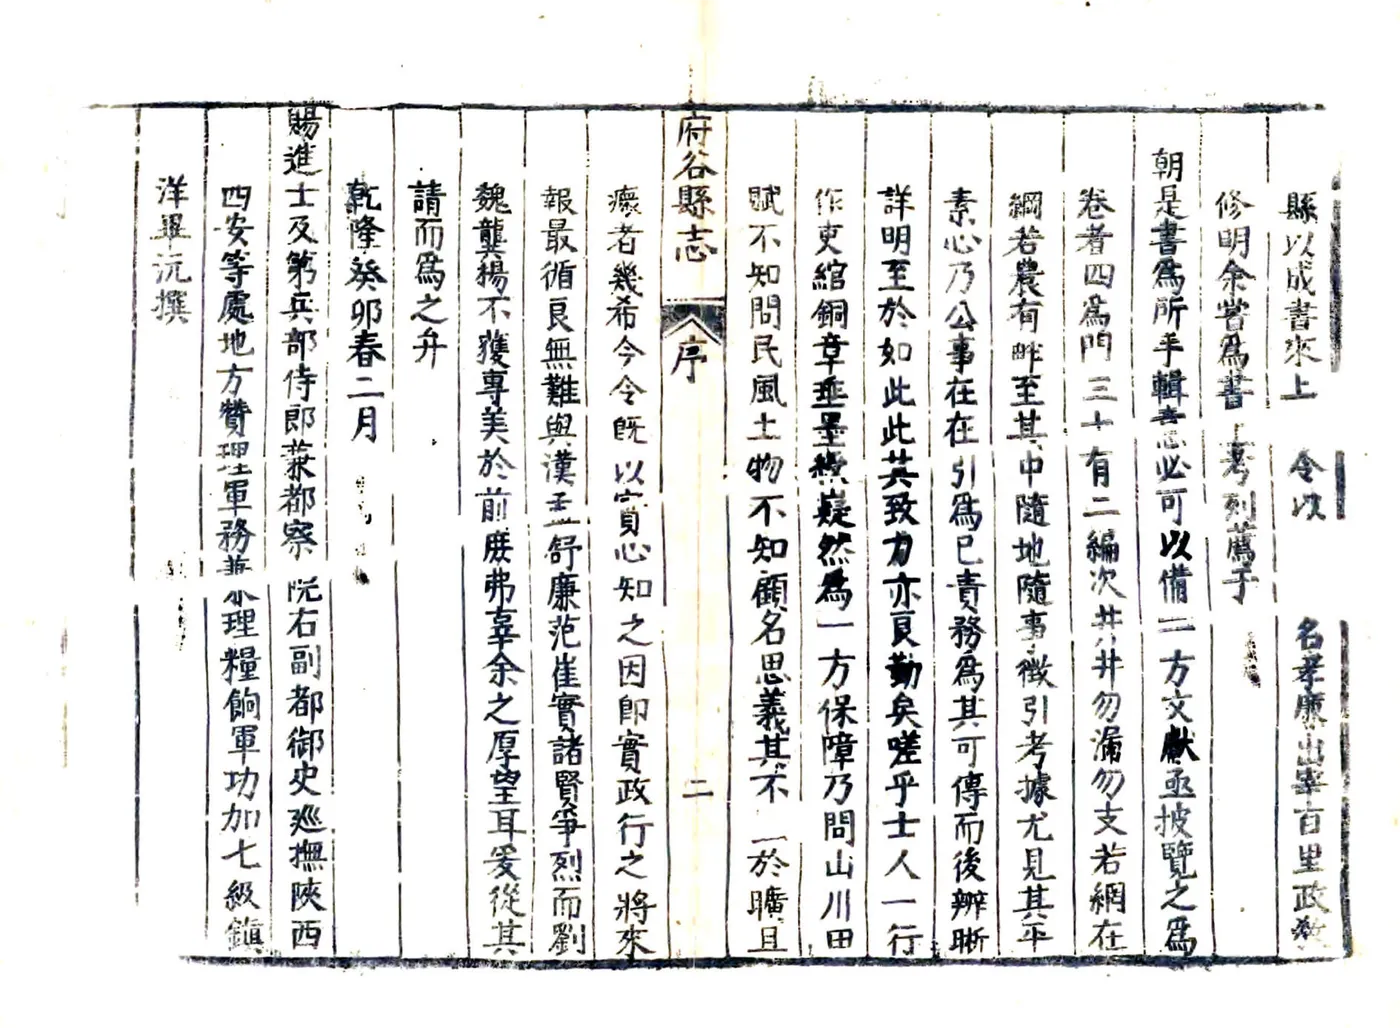 縣以成書來上 令以 名孝廉出宰百里政教
修明余嘗爲書上考列薦于
朝是書爲所手輯意必可以備一方文獻亟披覽之爲
卷者四爲門三十有二編次井井勿漏勿支若網在
綱若農有畔至其中隨地隨事徵引考據尤見其平
素心乃公事在在引爲已責務爲其可傳而後辨晰
詳明至於如此此其致力亦良勤矣嗟乎士人一行
作吏綰銅章垂墨綬嶷然爲一方保障乃問山川田
賦不知問民風土物不知顧名思義其不 於曠且
府谷縣志
序
二
瘝者幾希今令旣以實心知之因卽實政行之將來
報最循良無難與漢 舒廉范崔寔諸賢爭烈而劉
魏龔楊不獲專美於前庶弗辜余之厚望耳爰從其
請而爲之弁
乾隆癸卯春二月
賜進士及第兵部侍郎兼都察院右副都御史廵撫陝西
西安等處地方贊理軍務兼理糧餉軍功加七級鎮
洋畢沅撰